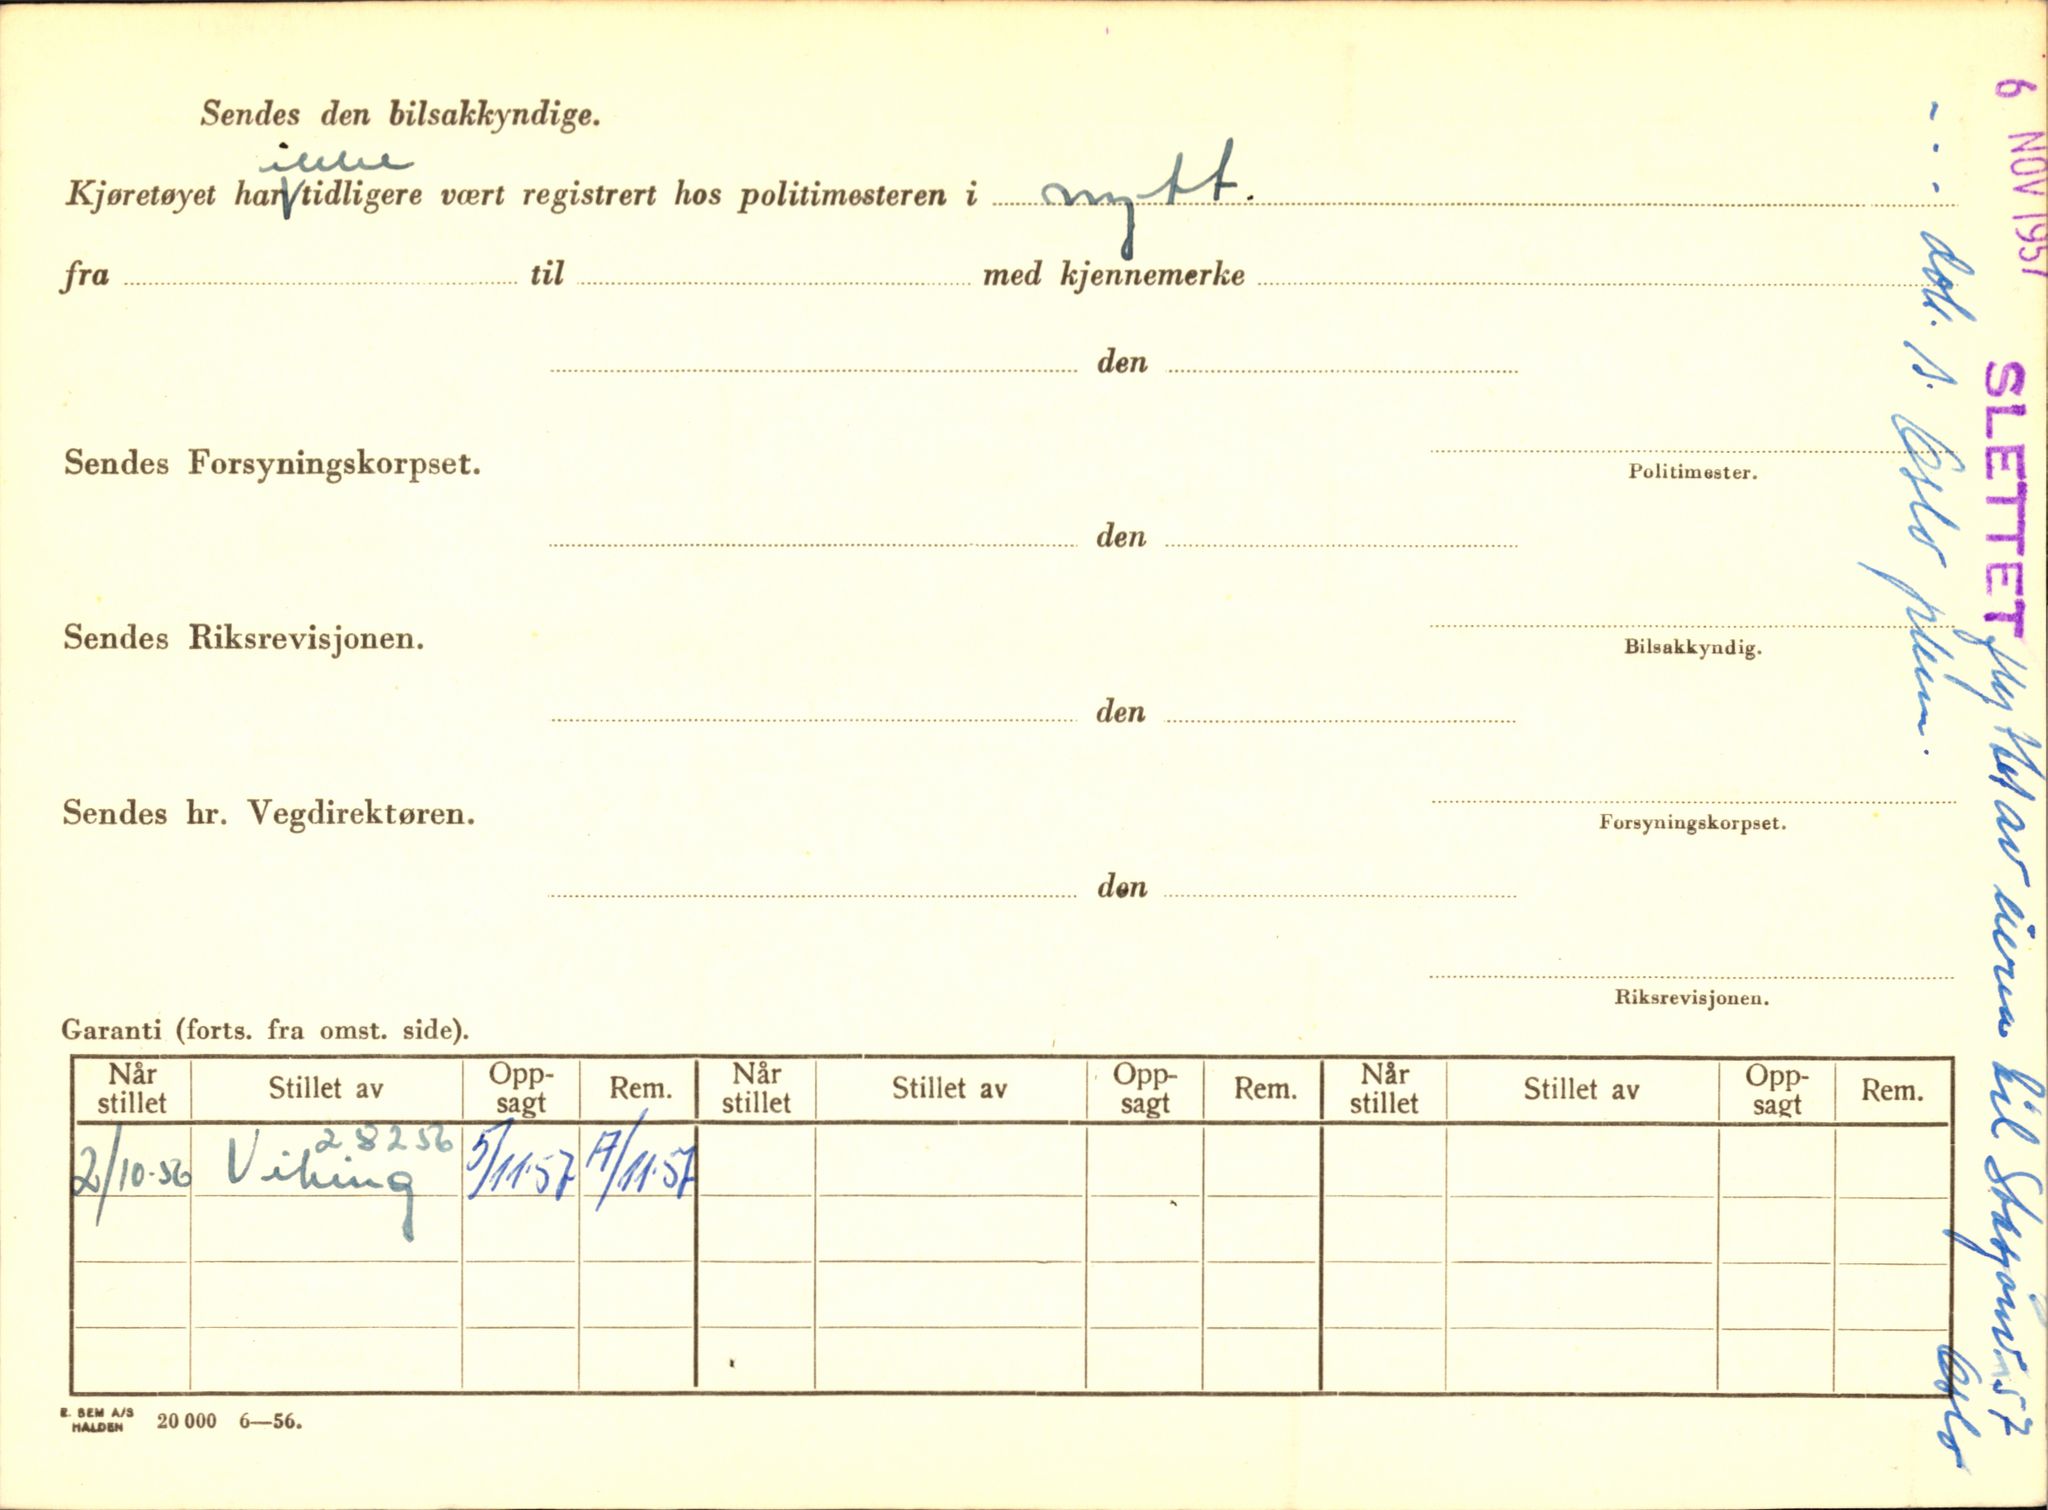 Sendes den bilsakkyndige.
ikke
Kjøretøyet har V tidligere vært registrert hos politimesteren i nytt.
fra til med kjennemerke
den
Sendes Forsyningskorpset.
Politimester.
den
Sendes Riksrevisjonen.
Bilsakkyndig.
den
Sendes hr. Vegdirektøren.
Forsyningskorpset.
den
Riksrevisjonen.
Garanti (forts. fra omst. side).
Når stillet Stillet av Opp-sagt Rem. Når stillet Stillet av Opp-sagt Rem. Når stillet Stillet av Opp-sagt Rem.
28256
2/10-56 Viking 5/11-57 7/11-57
E. SEM A/S
HALDEN 20 000 6—56.
6 NOV 1957
SLETTET flyttet av eieren til
57
Oslo
dat. Oslo